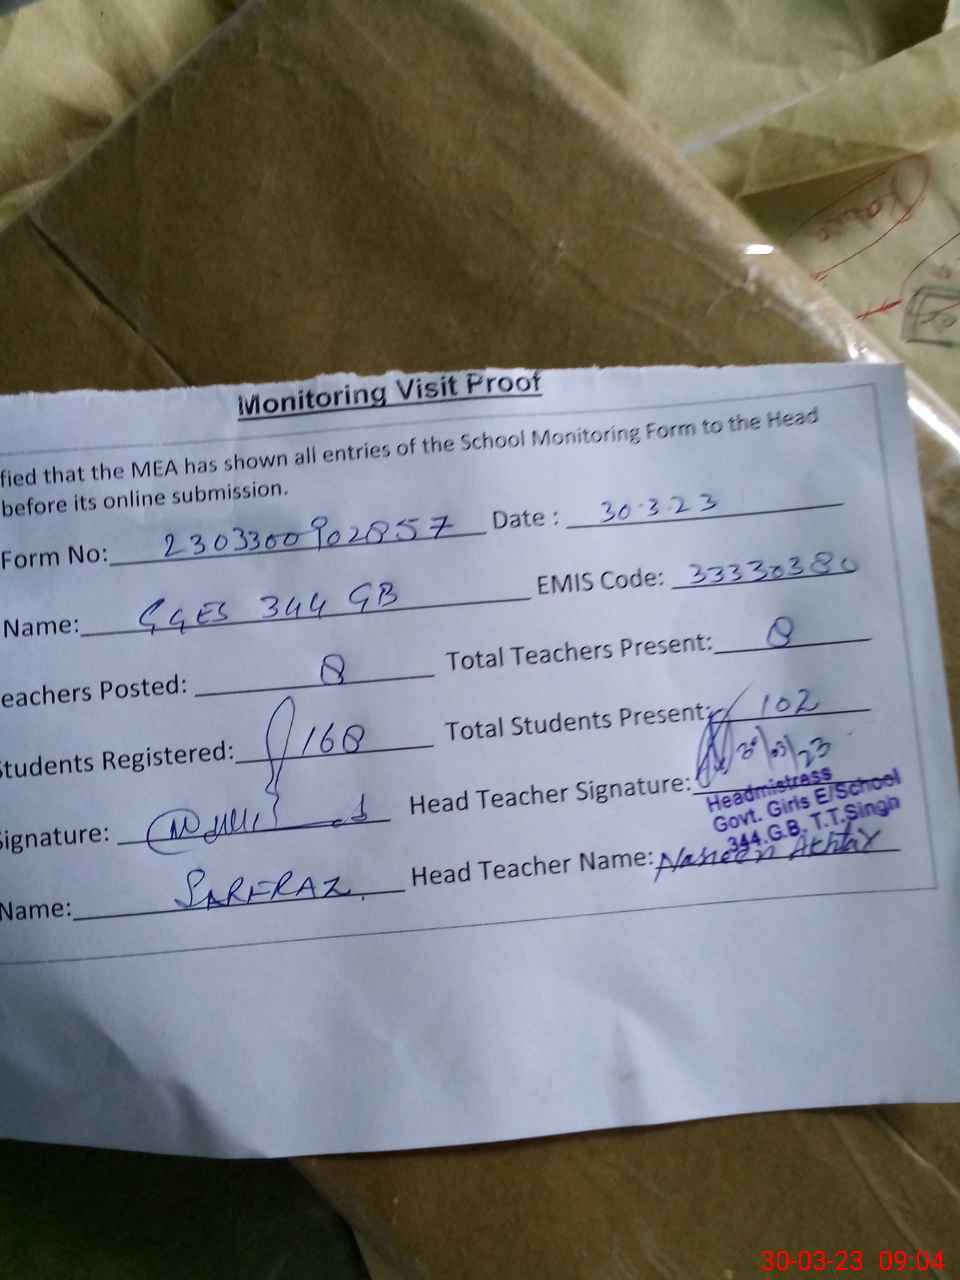 Monitoring Visit Proof
fied that the MEA has shown all entries of the School Monitoring Form to the Head
before its online submission.
Form No: 2303300902857 Date : 30.3.23
Name: GGES 344 GB EMIS Code: 33330380
eachers Posted: 8 Total Teachers Present: 8
Students Registered: 168 Total Students Present: 102
Signature: Head Teacher Signature: 30/03/23
Headmistress
Govt. Girls E/School
344.G.B. T.T.Singh
Name: SARFRAZ. Head Teacher Name: Nasreen Akhtar
30-03-23 09:04